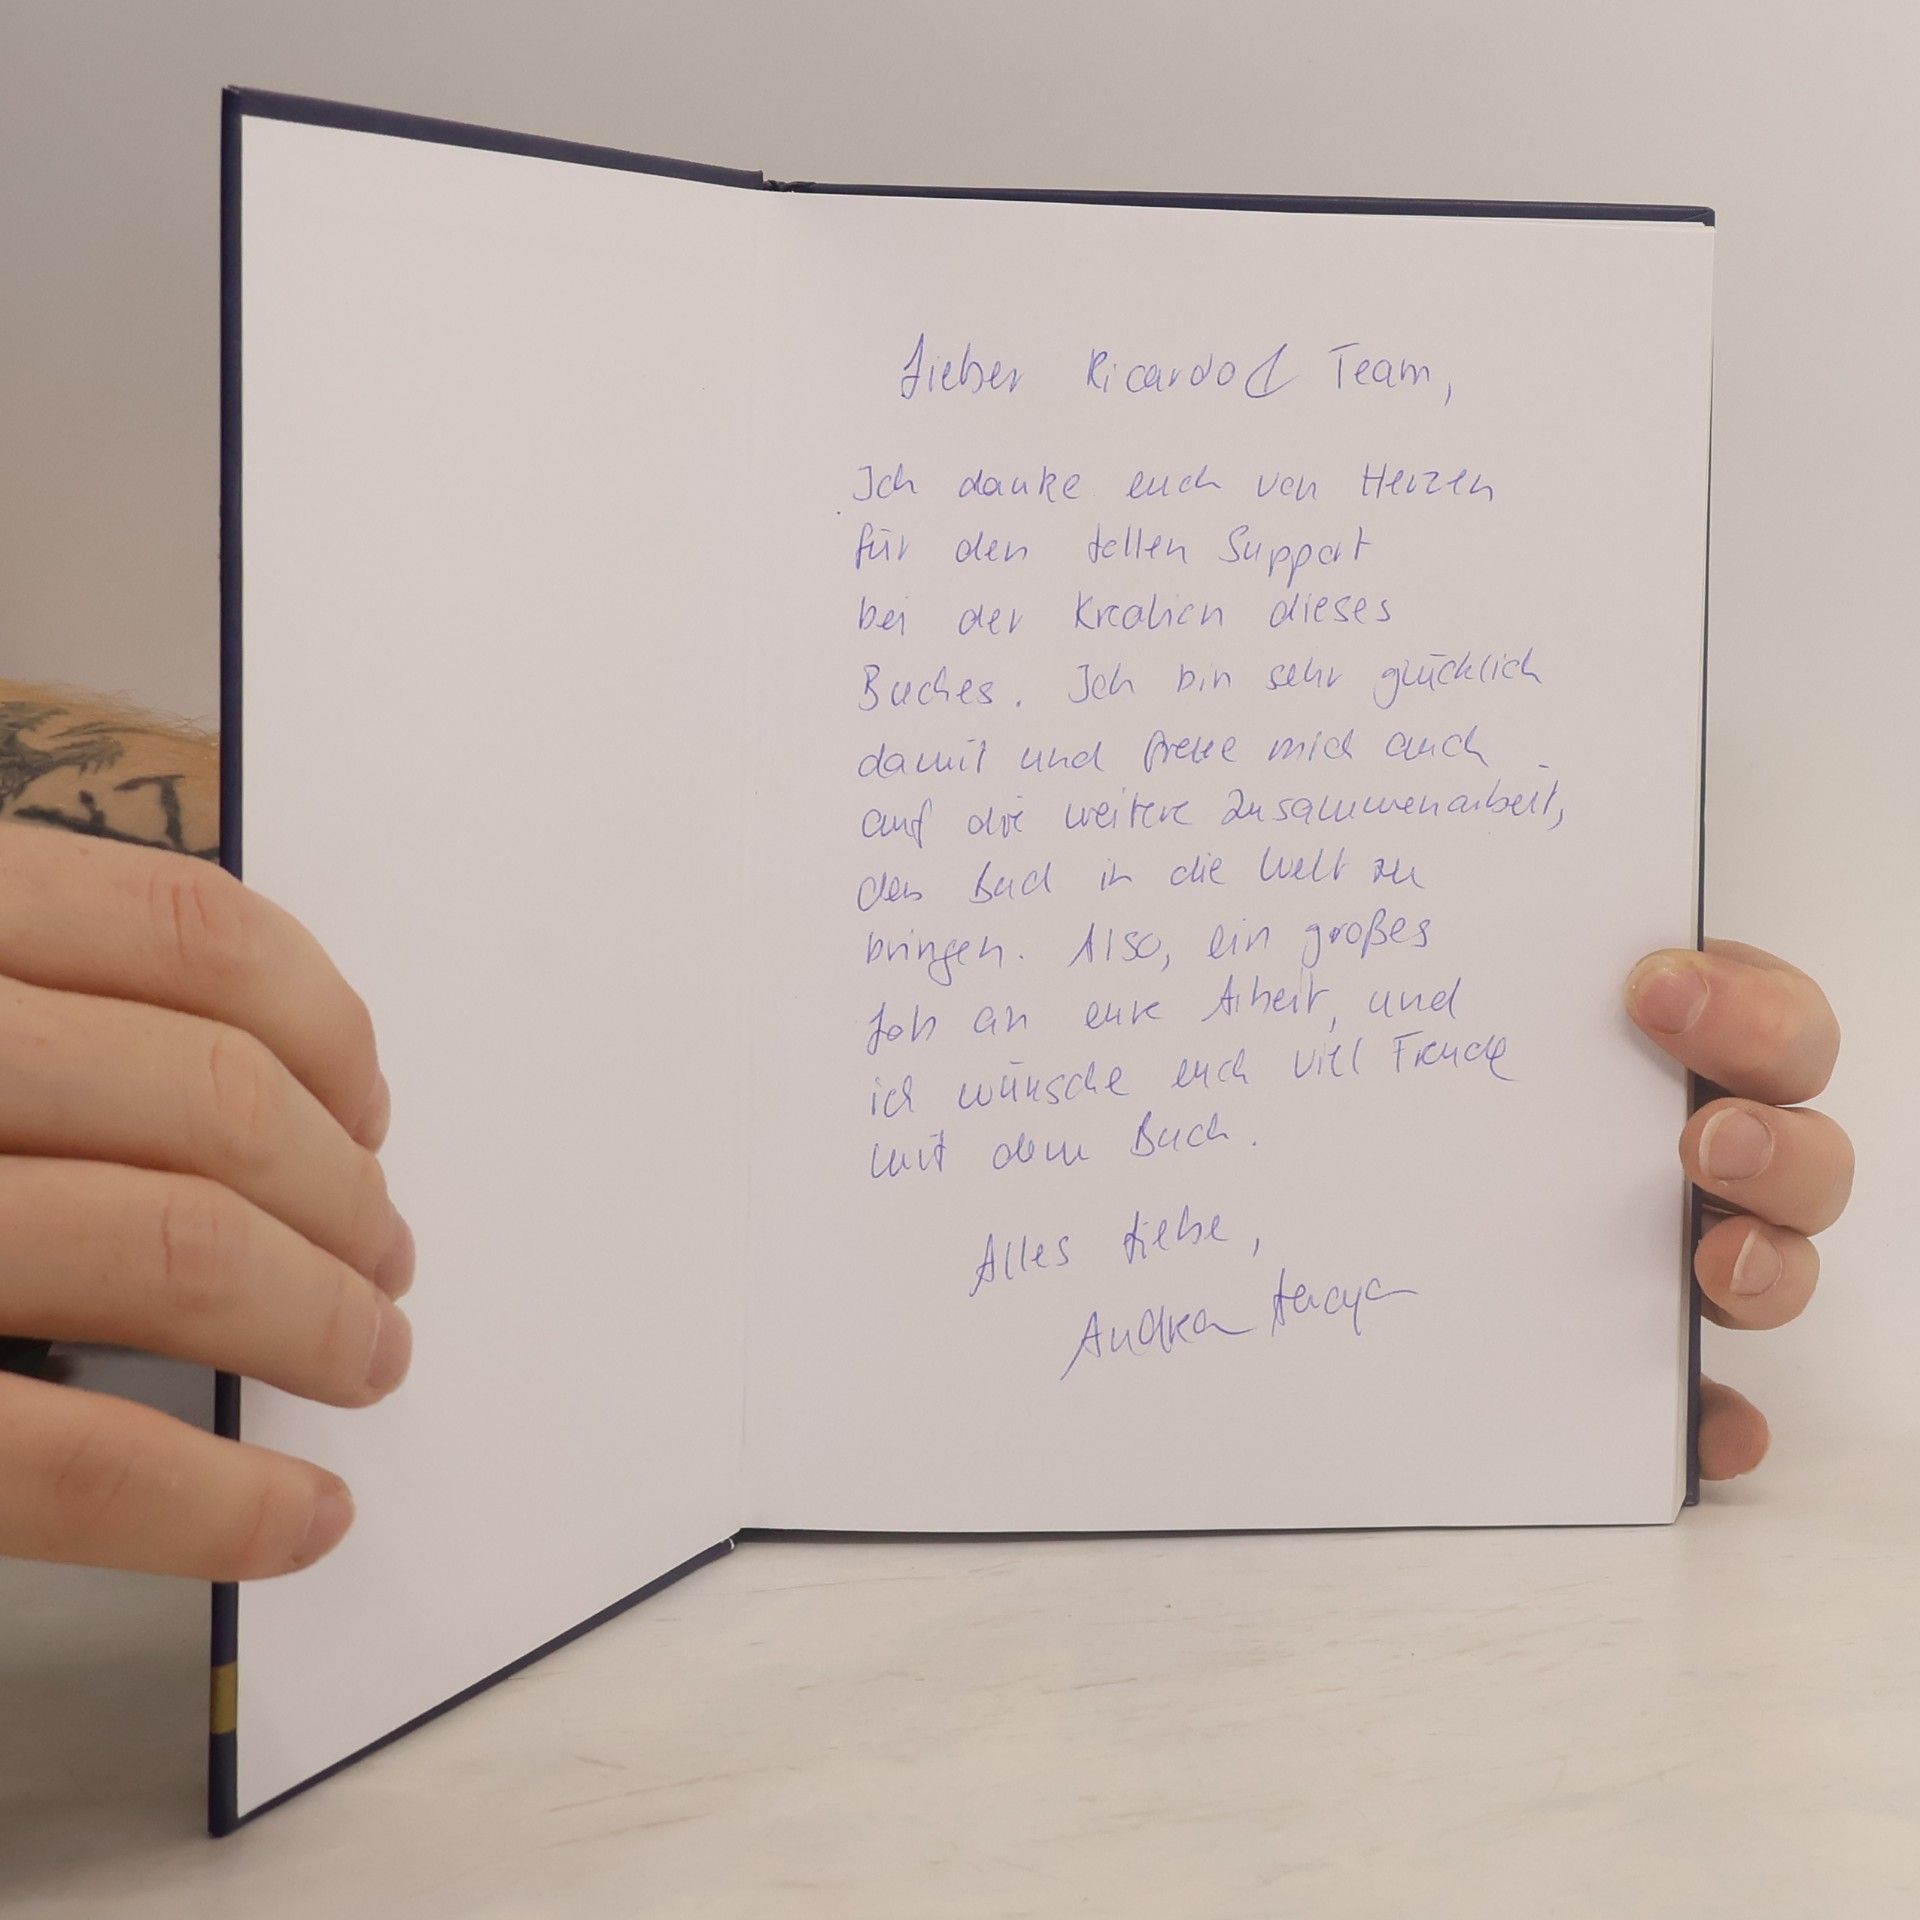 Lieber Ricardo & Team,
Ich danke euch von Herzen
für den tollen Support
bei der Kreation dieses
Buches. Ich bin sehr glücklich
damit und freue mich auch
auf die weitere Zusammenarbeit,
das Buch in die Welt zu
bringen. Also, ein großes
Lob an eure Arbeit, und
ich wünsche euch viel Freude
mit dem Buch.
Alles Liebe,
Andrea